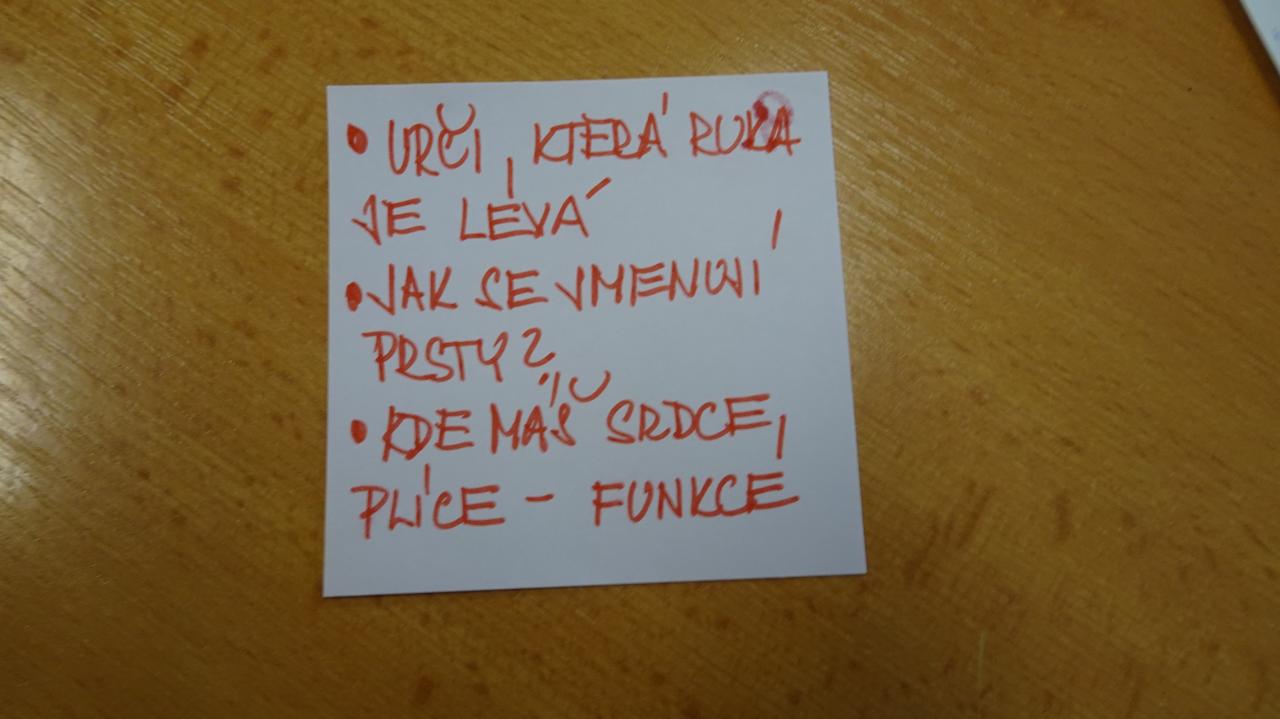 • URČI, KTERÁ RUKA
JE LEVÁ
• JAK SE JMENUJÍ
PRSTY?
• KDE MÁŠ SRDCE,
PLÍCE - FUNKCE